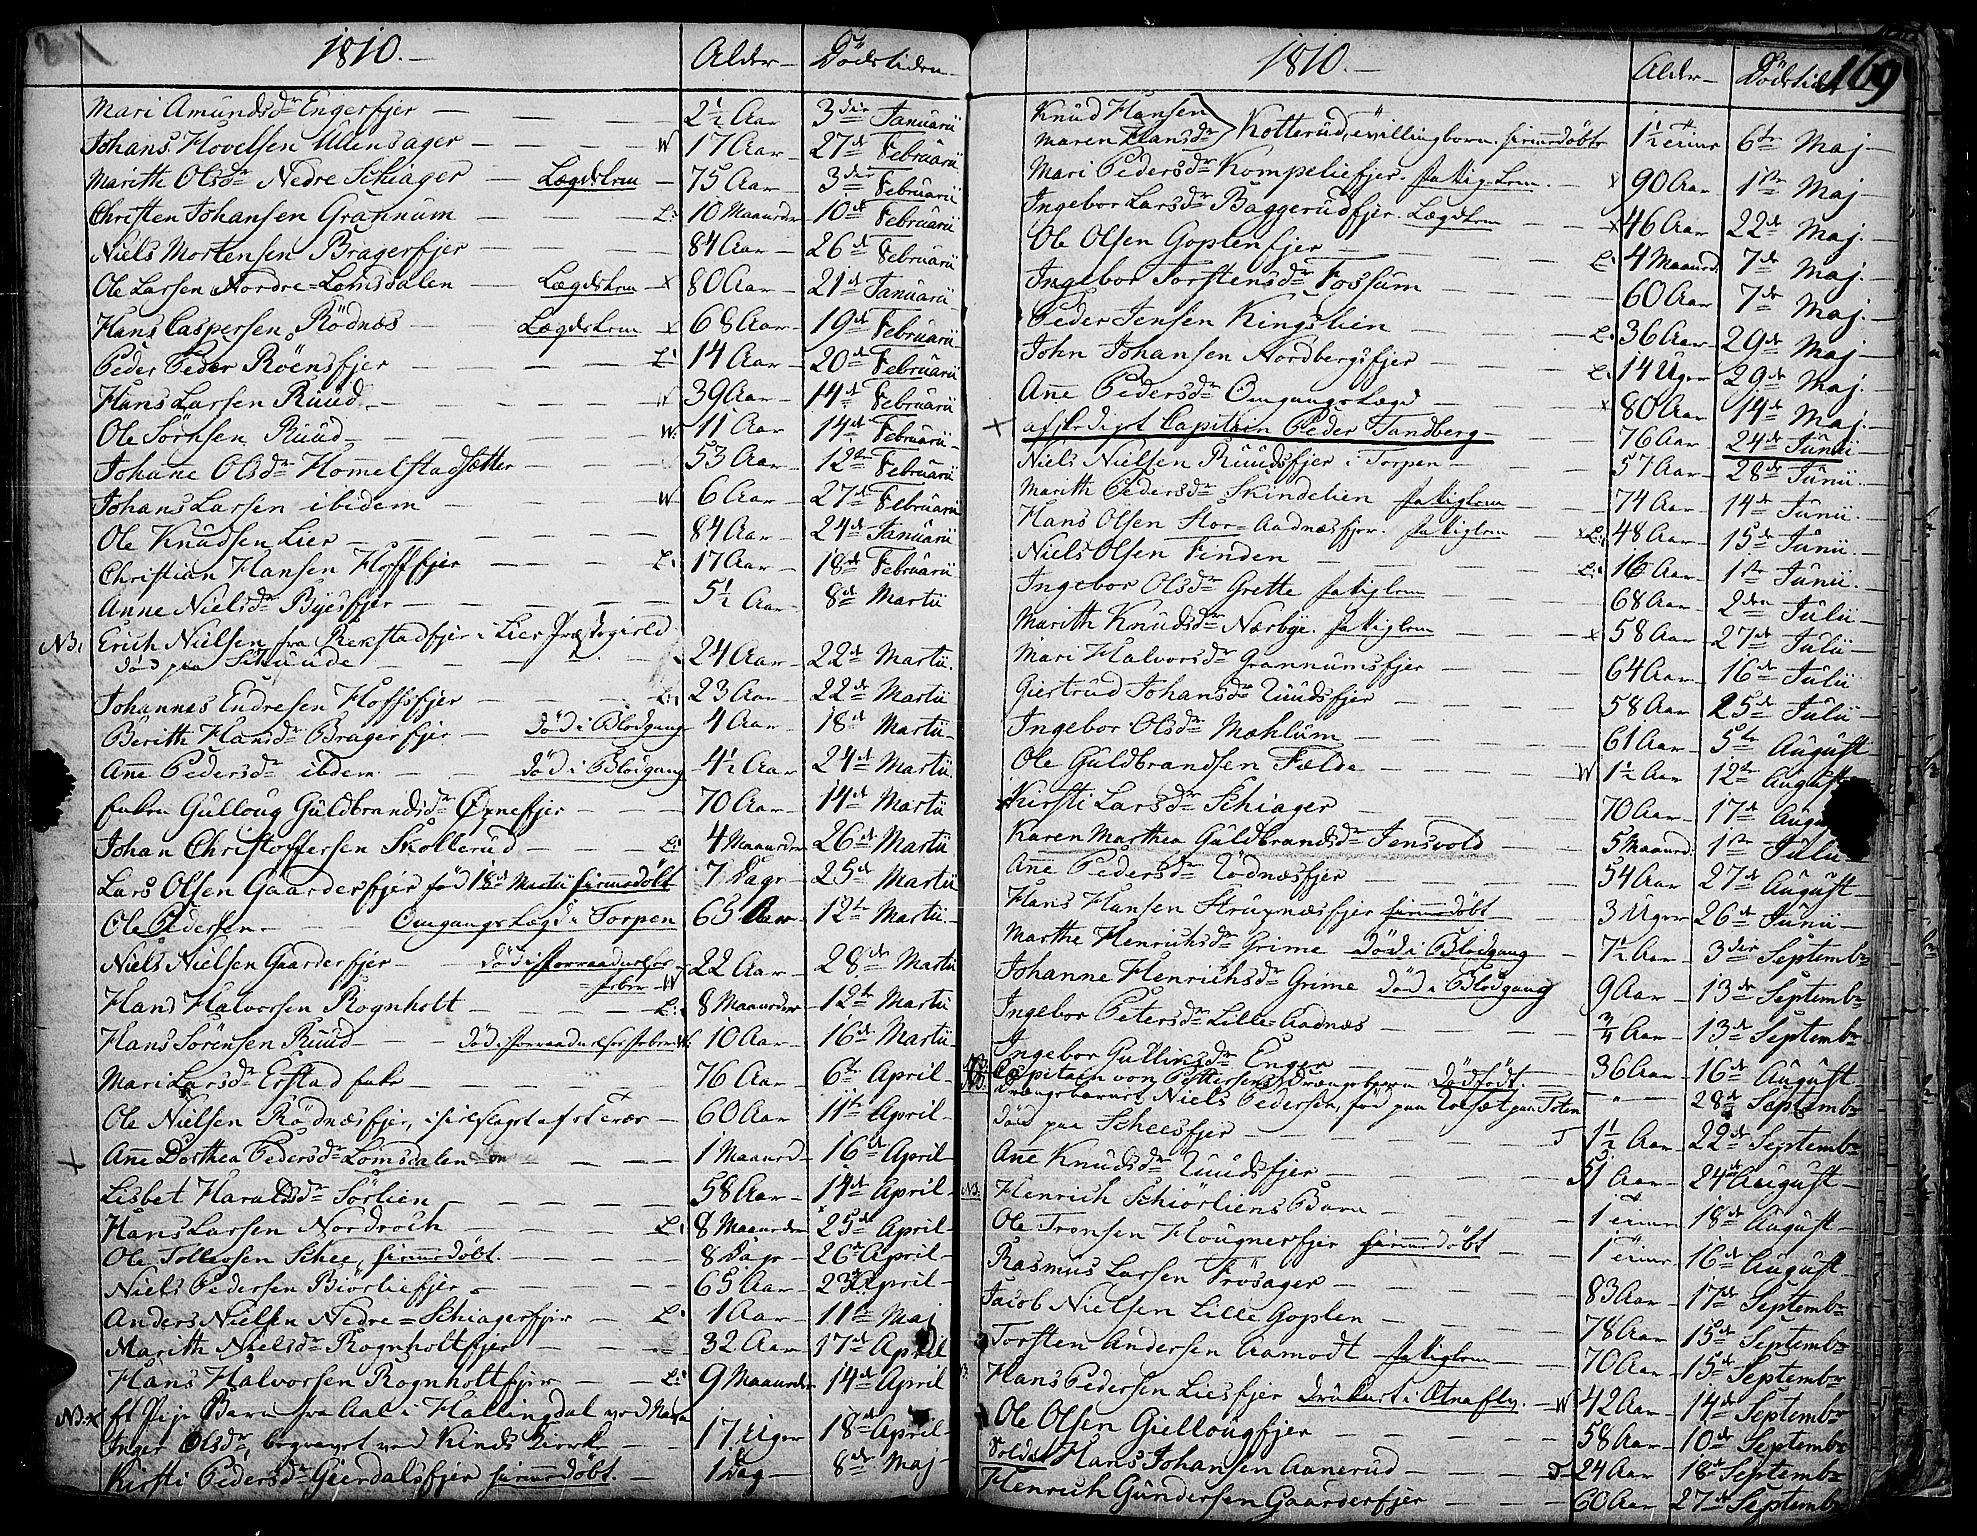 1810.— Alder— Dödstiden—
Mari Amundsdr Engerfjer — 2½ Aar 3die Januarii
Johans Hovelsen Ullensager — W 17 Aar— 27de Februarii
Marith Olsdr Nedre Schiager — Lægdslem — 75 Aar— 3die Februarii
Christen Johansen Grannum — L: 10 Maaneder 10de Februarii
Niels Mortensen Bragerfjer — 84 Aar— 26de Februarii
Ole Larsen Nordre=Lomsdalen — Lægdslem — x 80 Aar— 21de Januarii
Hans Caspersen Rödnæs — Lægdslem — x 68 Aar— 19de Februarii
Peder Peder Röensfjer — L: 14 Aar— 20de Februarii
Hans Larsen Ruud — W 39 Aar— 14de Februarii
Ole Sörnsen Ruud — W. 11 Aar 14de Februarii
Johane Olsdr Homelstadsætter — 53 Aar— 12te Februarii
Johans Larsen ibidem — W 6 Aar— 27de Februarii
Ole Knudsen Lier — 84 Aar— 24de Januarii
Christian Hansen Hoffsfjer — L: 17 Aar— 18de Februarii
Anne Nielsdr Byesfjer — 5½ Aar— 8de Martii
NB: Erich Nielsen fra Rexstadfjer i Lier Præstegield
död paa Skuude — 24 Aar— 22de Martii
Johannes Endresen Hoffsfjer — L: 23 Aar— 22de Martii
Berith Hansdr Bragerfjer — död i Blodgang 4 Aar— 18de Martii
Anne Pedersdr ibdem — död i Blodgang 4½ Aar— 24de Martii
Enken Gulloug Guldbrandsdr Öynefjer — 70 Aar— 14de Martii
Johan Christoffersen Skollerud — L: 4 Maaneder 26de Martii
Lars Olsen Gaarderfjer född 18de Martii hiemmedöbt 7 Dage— 25de Martii
Ole Pedersen — Omgangslægd i Torpen 65 Aar— 12te Martii
Niels Nielsen Gaarderfjer — död i Forraadnelses 22 Aar— 28de Martii
feber W
Hans Halvorsen Rognholt — L: 8 Maaneder— 12te Martii
Hans Sörensen Ruud — död i Forraadnelsesfeber W. 10 Aar— 16de Martii
Mari Larsdr Erstad Enke — 76 Aar— 6te April—
Ole Nielsen Rödnæsfjer, — 60 Aar— 11te April
x Anne Dorthea Pedersdr Lomsdalen — 1 Maaned— 16de April
Lisbet Haraldsdr Sörlien — 58 Aar— 14de April—
Hans Larsen Nordroch — L: 8 Maaneder 25de April—
Ole Tollevsen Schee, hiemmedöbt. — 8 Dage— 26de April—
Niels Pedersen Biörliefjer. — 65 Aar— 23de April—
Anders Nielsen Nedre=Schiagerfjer — L: 1 Aar— 11te Maj
Marith Nielsdr Rognholtfjer — 32 Aar— 17de April
Hans Halvorsen Rognholtfjer — L: 9 Maaneder 14de April
NB: x Et Pige Barn fra Aal i Hallingdal ved Navn
Inger Olsdr, begravet ved Kinds Kirke — 17 Uger 18de April—
Kirsti Pedersdr Gierdalsfjer hiemmedöbt. — 1 Dag— 8de Maj—
1810.— Alder— Dödstid 169
Knud Hansen
Maren Hansdr Kotterud, tvillingbörn. hiemmedöbte 1½ Time 6te Maj—
Mari Pedersdr Kompeliefjer. fattiglem. — x 90 Aar 1ste Maj—
Ingebor Larsdr Baggerudfjer. Lægdslem — x 46 Aar 22de Maj.—
Ole Olsen Goplenfjer — L: 4 Maaned. 7de Maj—
Ingebor Torstensdr Fossum — 60 Aar 7de Maj.—
Peder Jensen Kingslien — L. 36 Aar— 29de Maj—
John Johansen Nordbergsfjer — L. 14 Uger 29de Maj.—
Anne Pedersdr Omgangslægd — x 80 Aar 14de Maj—
x afskediget Capitain Peder Sandberg — 76 Aar 24de Junii
Niels Nielsen Ruudsfjer i Torpen — 57 Aar— 28de Junii
Marith Pedersdr Skindelien fattiglem — 74 Aar 14de Junii
Hans Olsen Stor=Aadnæsfjer. fattiglem — xL: 48 Aar— 15de Junii—
Niels Olsen Finden — L: 16 Aar— 1ste Junii—
Ingebor Olsdr Grette fattiglem — 68 Aar— 2den Julii
Marith Knudsdr Nærbye. fattiglem — x 58 Aar— 27de Julii
Mari Halvorsdr Grannumsfjer — 64 Aar— 16de Julii
Giertrud Johansdr Ruudsfjer — 58 Aar 25de Julii—
Ingebor Olsdr Mæhlum — 61 Aar— 5te August
Ole Guldbrandsen Fælde — W 1½ Aar 12te August
Kirsti Larsdr Schiager — 70 Aar— 17de August
Karen Marthea Guldbrandsdr Jensvold — 5 Maaned. 1ste Julii
Anne Pedersdr Rödnæsfjer — 54 Aar 27de August—
Hans Hansen Strupnæsfjer hiemmedöbt — 3 Uger— 26de Junii—
Marthe Henrichsdr Grime död i Blodgang — 7½ Aar— 3die Septembr
Johanne Henrichsdr Grime död i Blodgang 9 Aar— 13de Septembr
Ingebor Petersdr Lille=Aadnæs — ¾ Aar— 13de Septembr
Ingebor Gullixsdr Enger — 36 Aar— 16de August—
NB. Capitain von Pettersens Drængebarn dödfödt. — 28de Septembr
NB. Drængebarnet Niels Pedersen, föd paa paa Toten
död paa Scheesfjer — T 1½ Aar— 22de Septembr
Ane Knudsdr Ruudsfjer — 51 Aar— 24de August—
NB. Henrich Schiörliens Barn — 1 Time— 18de August—
Ole Tronsen Hougnerfjer hiemmedöbt — 1 Time— 16de August—
Rasmus Larsen Frösager — 83 Aar— 17de Septembr
Jacob Nielsen Lille Goplen — 78 Aar— 15de Septembr
Torsten Andersen Aamodt fattiglem — 70 Aar— 15de Septembr
Hans Pedersen Liesfjer druknet i Etnaelv. — W 42 Aar— 14de Septembr
Ole Olsen Giellougfjer — 58 Aar— 10de Septembr
Soldat Hans Johansen Aanerud — T 24 Aar 18de Septembr
Henrich Gundersen Gaarderfjer — 60 Aar— 27de Septembr